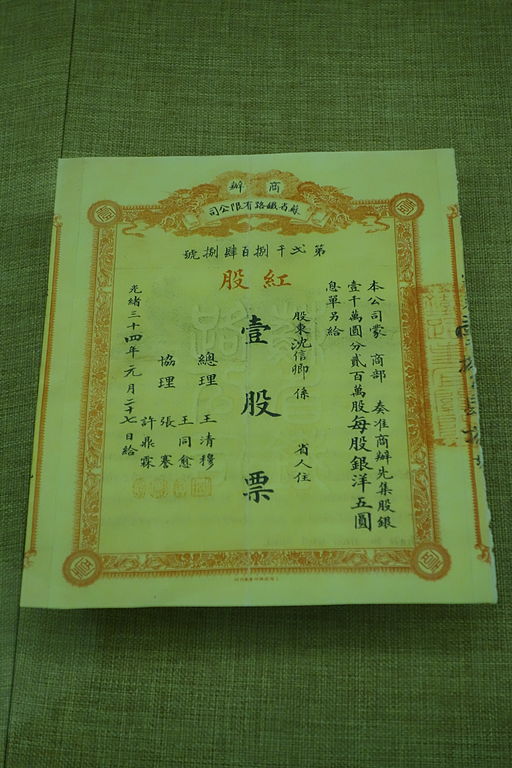 商辦
蘇省鐵路有限公司
第弍千捌百肆捌號
紅股
本公司蒙 商部 奏准商辦先集股銀
壹千萬圓分貳百萬股每股銀洋五圓
息單另給
股東沈信卿係 省人住
壹股票
總理 王清穆
協理 張謇
王同愈
許鼎霖
光緒三十四年元月二十七日給